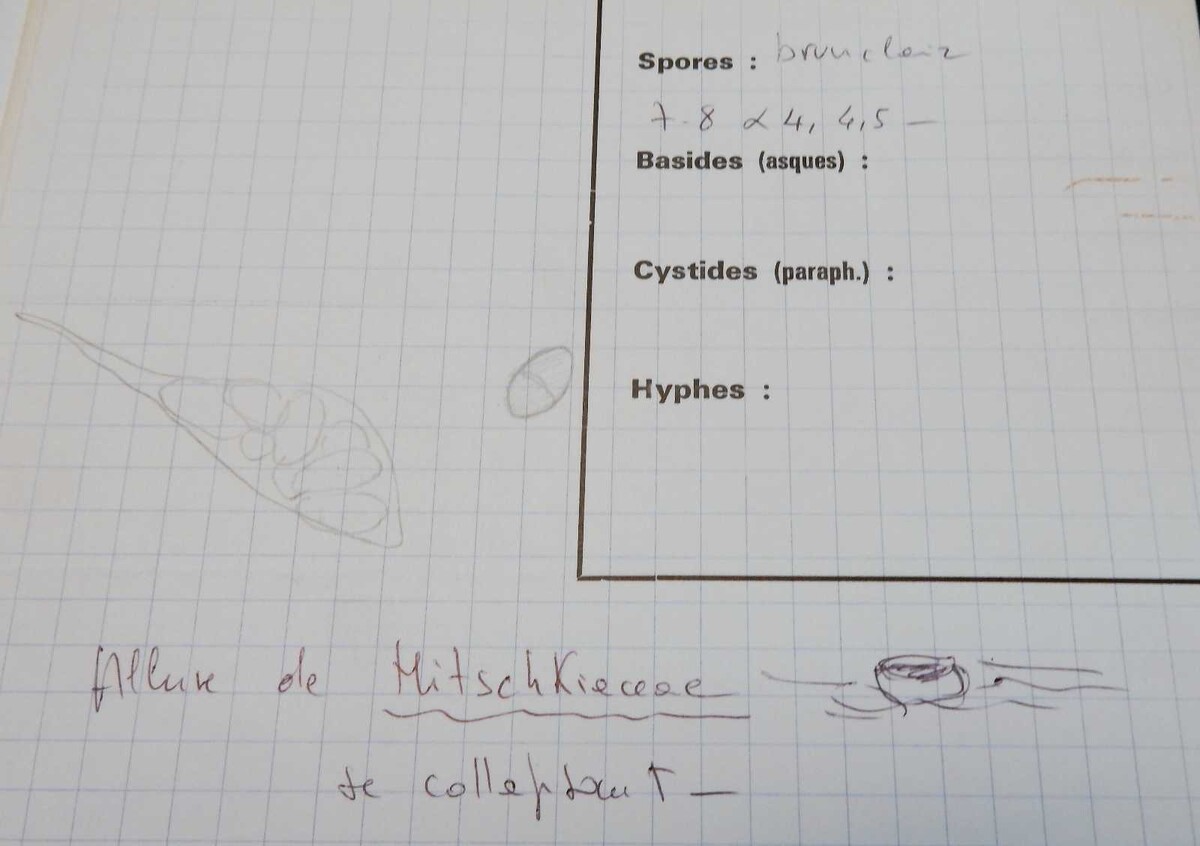 Spores : brun clair
7-8 x 4, 4,5 —
Basides (asques) :
Cystides (paraph.) :
Hyphes :
Allure de Nitschkiaceae
se collaptant —